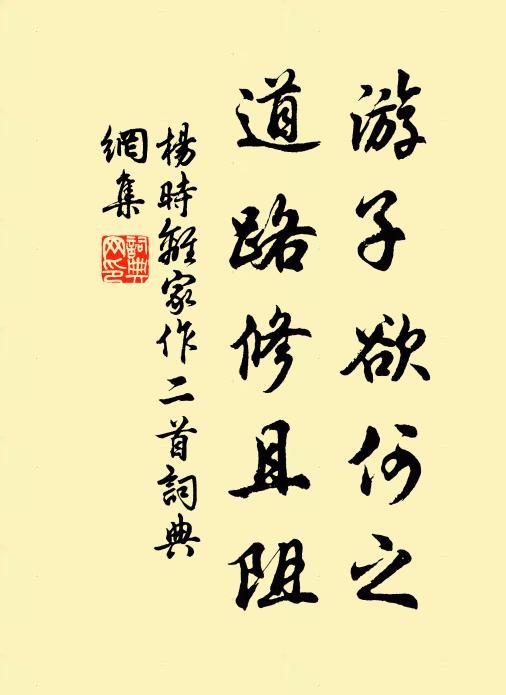 游子欲何之
道路修且阻
楊時離家作二首詞典
網集
詞典
网印